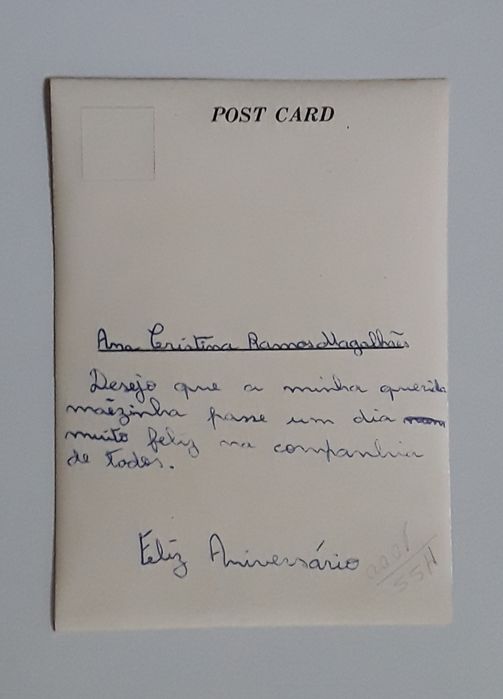 POST CARD
Ana Cristina Ramos Magalhães
Desejo que a minha querida
mãezinha passe um dia
muito feliz na companhia
de todos.
Feliz Aniversário